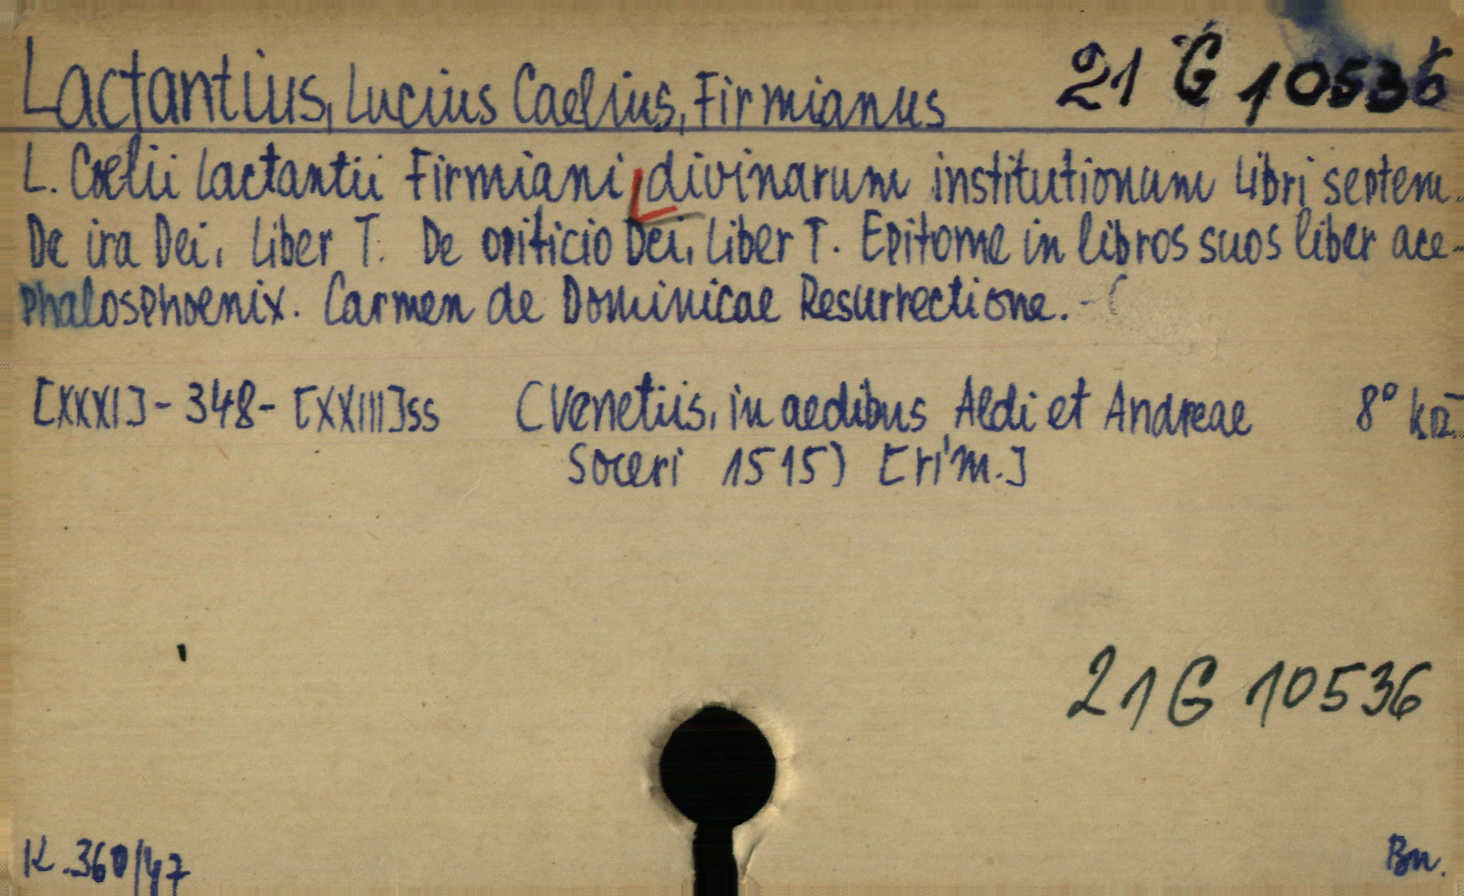 Lactantius, Lucius Caelius, Firmianus 21 G 10536
L. Coelii Lactantii Firmiani divinarum institutionum Libri septem.
De ira Dei, Liber I. De opificio Dei, Liber I. Epitome in libros suos liber ace-
phalosphoenix. Carmen de Dominicae Resurrectione. -
[XXXI] - 348 - [XXIII] ss (Venetiis, in aedibus Aldi et Andreae 8°
Soceri 1515) [rim.]
21 G 10536
K. 360/47 Bn.